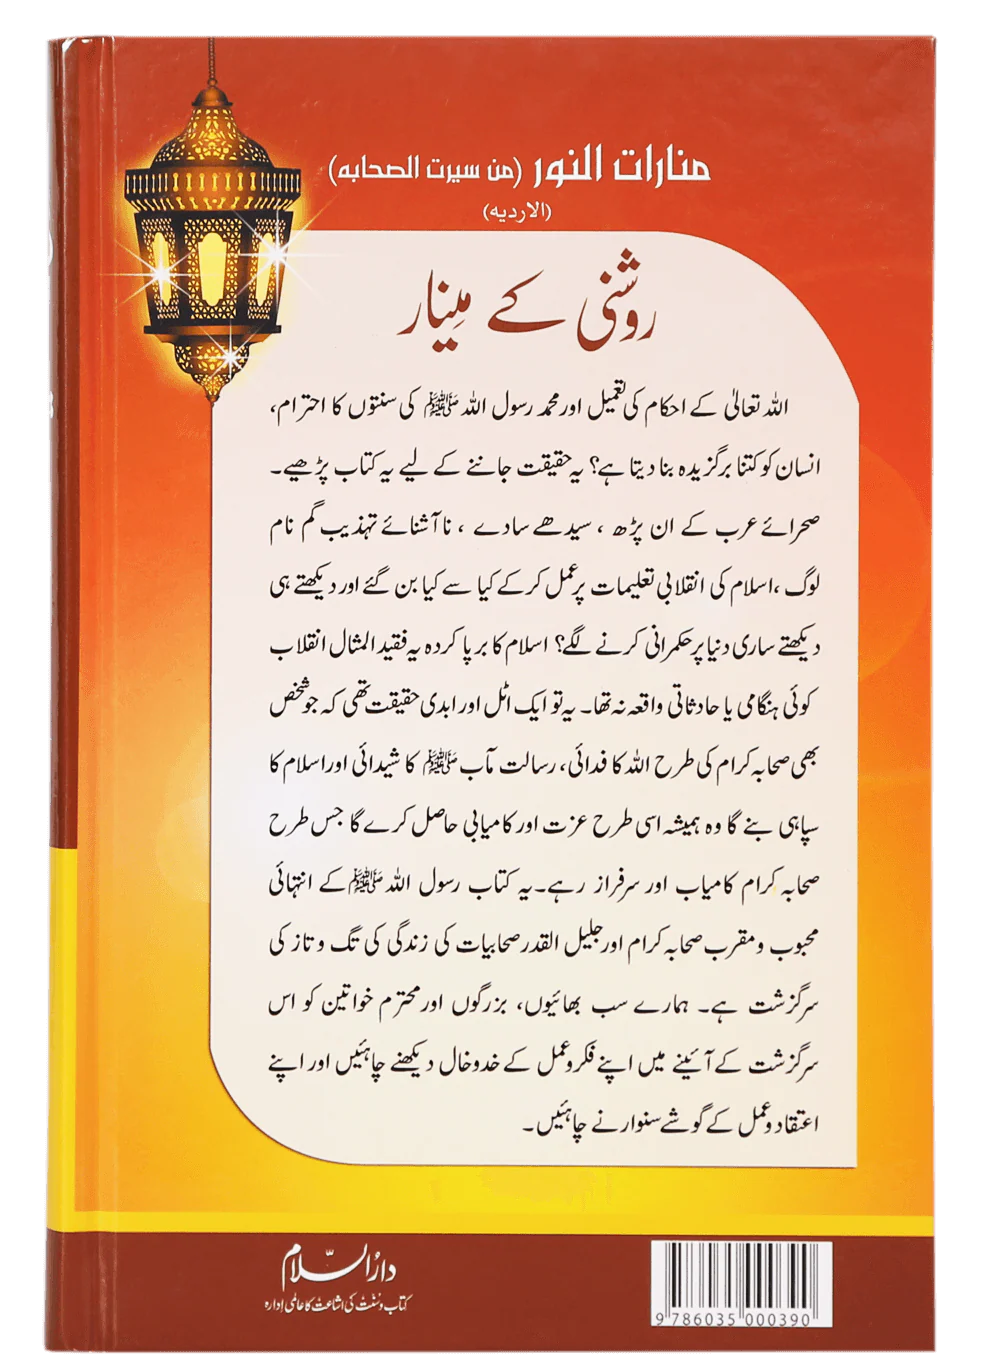 منارات النور (من سيرت الصحابه)
(الارديه)
روشنی کے مِینار
اللہ تعالیٰ کے احکام کی تعمیل اور محمد رسول اللہ ﷺ کی سنتوں کا احترام،
انسان کو کتنا برگزیدہ بنا دیتا ہے؟ یہ حقیقت جاننے کے لیے یہ کتاب پڑھیے۔
صحرائے عرب کے ان پڑھ ، سیدھے سادے ، نا آشنائے تہذیب گم نام
لوگ ،اسلام کی انقلابی تعلیمات پر عمل کر کے کیا سے کیا بن گئے اور دیکھتے ہی
دیکھتے ساری دنیا پر حکمرانی کرنے لگے؟ اسلام کا برپا کردہ یہ فقید المثال انقلاب
کوئی ہنگامی یا حادثاتی واقعہ نہ تھا۔ یہ تو ایک اٹل اور ابدی حقیقت تھی کہ جو شخص
بھی صحابہ کرام کی طرح اللہ کا فدائی، رسالت مآب ﷺ کا شیدائی اور اسلام کا
سپاہی بنے گا وہ ہمیشہ اسی طرح عزت اور کامیابی حاصل کرے گا جس طرح
صحابہ کرام کامیاب اور سرفراز رہے۔ یہ کتاب رسول اللہ ﷺ کے انتہائی
محبوب و مقرب صحابہ کرام اور جلیل القدر صحابیات کی زندگی کی تگ و تاز کی
سرگزشت ہے۔ ہمارے سب بھائیوں، بزرگوں اور محترم خواتین کو اس
سرگزشت کے آئینے میں اپنے فکر و عمل کے خدوخال دیکھنے چاہئیں اور اپنے
اعتقاد و عمل کے گوشے سنوارنے چاہئیں۔
دارُالسّلام
کتاب و سُنّت کی اشاعت کا عالمی ادارہ
9 786035 000390